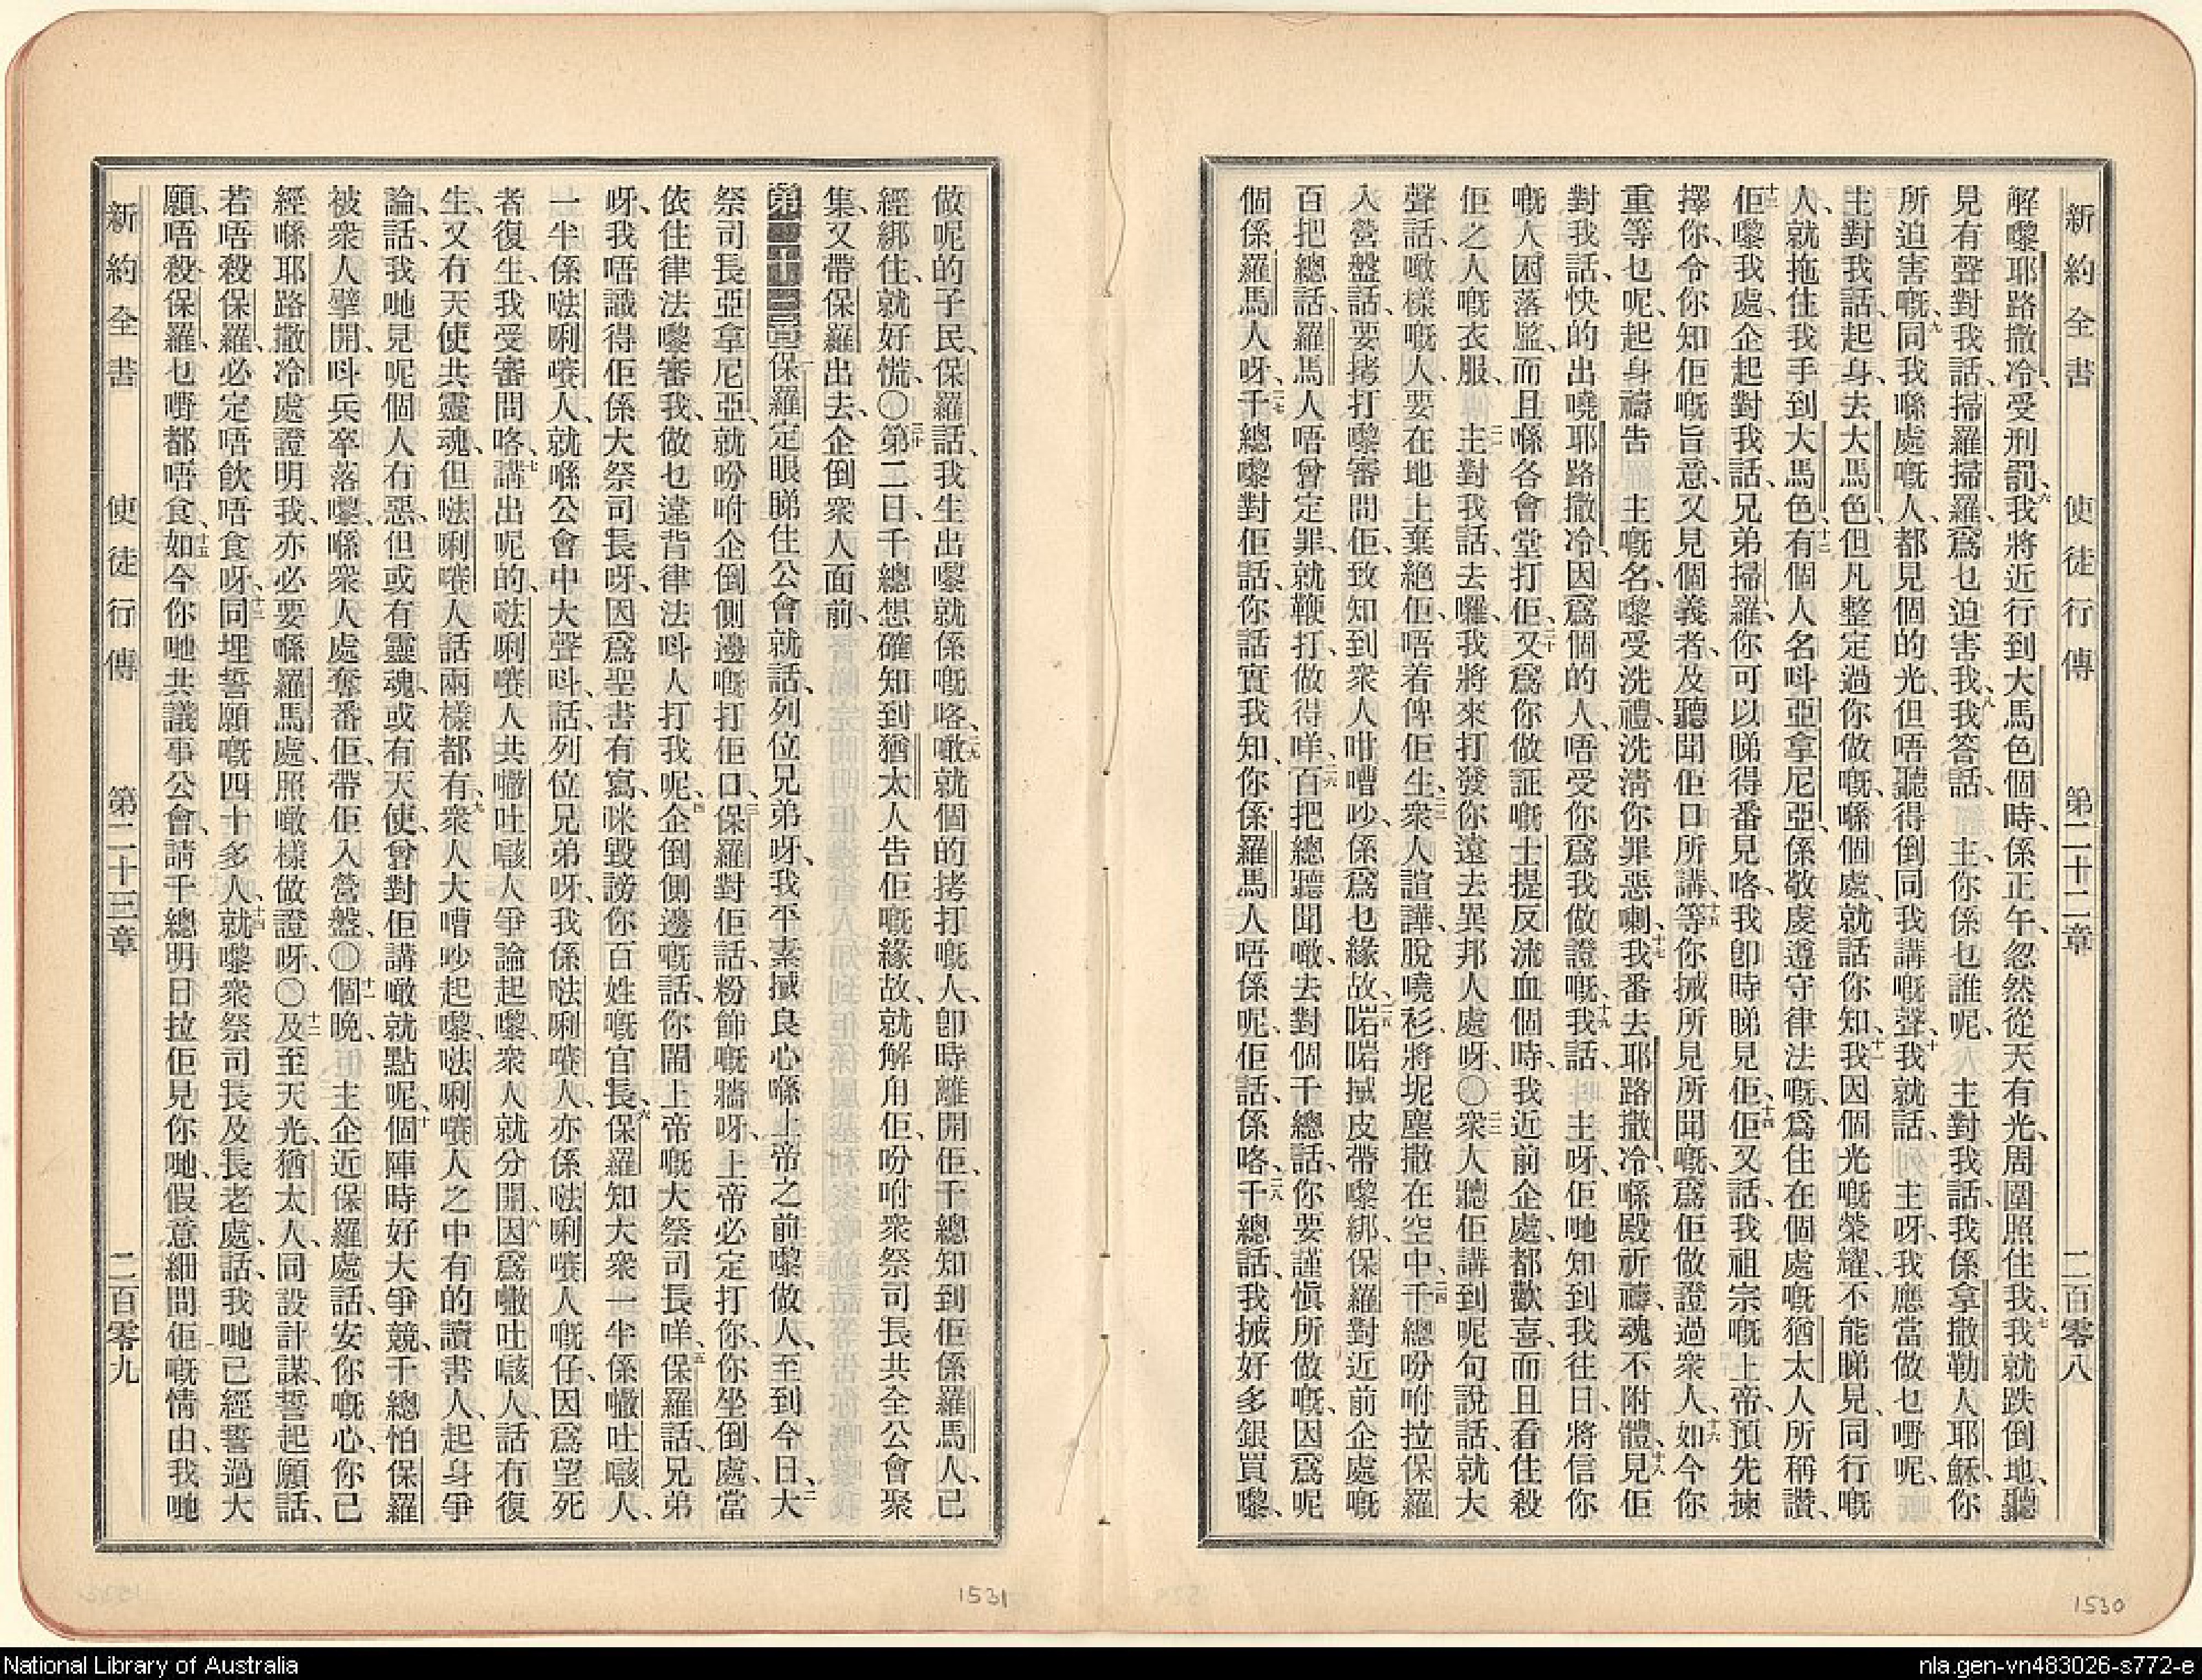 新約全書 使徒行傳 第二十二章 二百零八
解嚟耶路撒冷、受刑罰、六我將近行到大馬色個時、係正午、忽然從天有光、周圍照住我、七我就跌倒地、聽
見有聲對我話、掃羅掃羅、爲乜迫害我、八我答話、主、你係乜誰呢、主對我話、我係拿撒勒人耶穌、你
所迫害嘅、九同我喺處嘅人、都見個的光、但唔聽得倒同我講嘅聲、十我就話、主呀、我應當做乜嘢呢、
主對我話、起身、去大馬色、但凡整定過你做嘅、喺個處就話你知、十一我因個光嘅榮耀、不能睇見、同行嘅
人、就拖住我手到大馬色、十二有個人名呌亞拿尼亞、係敬虔遵守律法嘅、爲住在個處嘅猶太人所稱讚、
十三佢嚟我處、企起對我話、兄弟掃羅、你可以睇得番見咯、我卽時睇見佢、十四佢又話、我祖宗嘅上帝、預先揀
擇你、令你知佢嘅旨意、又見個義者、及聽聞佢口所講、十五等你㨢所見所聞嘅、爲佢做證過衆人、十六如今你
重等乜呢、起身禱告 主嘅名、嚟受洗禮、洗淸你罪惡喇、十七我番去耶路撒冷、喺殿祈禱、魂不附體、十八見佢
對我話、快的出嘵耶路撒冷、因爲個的人、唔受你爲我做證嘅、十九我話、主呀、佢哋知到我往日、將信你
嘅人困落監、而且喺各會堂打佢、二十又爲你做証嘅士提反流血個時、我近前企處、都歡喜、而且看住殺
佢之人嘅衣服、二一主對我話、去囉、我將來打發你遠去異邦人處呀、〇二二衆人聽佢講到呢句說話、就大
聲話、噉樣嘅人、要在地上棄絕佢、唔着俾佢生、二三衆人諠譁、脫嘵衫、將坭塵撒在空中、二四千總吩咐拉保羅
入營盤、話、要拷打嚟審問佢、致知到衆人咁嘈吵、係爲乜緣故、二五啱啱㨢皮帶嚟綁、保羅對近前企處嘅
百把總話、羅馬人唔曾定罪、就鞭打、做得咩、二六百把總聽聞噉、去對個千總話、你要謹愼所做嘅、因爲呢
個係羅馬人呀、二七千總嚟對佢話、你話實我知、你係羅馬人唔係呢、佢話、係咯、二八千總話、我㨢好多銀買嚟、
做呢的子民、保羅話、我生出嚟就係嘅咯、二九噉就個的拷打嘅人、卽時離開佢、千總知到佢係羅馬人、已
經綁住、就好慌、〇三十第二日、千總想確知到猶太人告佢嘅緣故、就解甪佢、吩咐衆祭司長共全公會聚
集、又帶保羅出去、企倒衆人面前、
第二十三章 一保羅定眼睇住公會就話、列位兄弟呀、我平素㨢良心喺上帝之前嚟做人、至到今日、二大
祭司長亞拿尼亞、就吩咐企倒側邊嘅打佢口、三保羅對佢話、粉飾嘅牆呀、上帝必定打你、你坐倒處、當
依住律法嚟審我、做乜違背律法呌人打我呢、四企倒側邊嘅話、你鬧上帝嘅大祭司長咩、五保羅話、兄弟
呀、我唔識得佢係大祭司長呀、因爲聖書有寫、咪毀謗你百姓嘅官長、六保羅知大衆一半係㗳吐㗒人、
一半係㗲唎㘔人、就喺公會中大聲呌、話、列位兄弟呀、我係㗲唎㘔人、亦係㗲唎㘔人嘅仔、因爲望死
者復生、我受審問咯、七講出呢的、㗲唎㘔人共㗳吐㗒人爭論起嚟、衆人就分開、八因爲㗳吐㗒人、話冇復
生、又冇天使共靈魂、但㗲唎㘔人話兩樣都有、九衆人大嘈吵起嚟、㗲唎㘔人之中有的讀書人、起身爭
論、話、我哋見呢個人冇惡、但或有靈魂、或有天使、曾對佢講噉就點呢、十個陣時好大爭競、千總怕保羅
被衆人擘開、呌兵卒落嚟、喺衆人處奪番佢、帶佢入營盤、〇十一個晚、主企近保羅處話、安你嘅心、你已
經喺耶路撒冷處證明我、亦必要喺羅馬處、照噉樣做證呀、〇十二及至天光、猶太人、同設計謀、誓起願話、
若唔殺保羅、必定唔飲唔食呀、十三同埋誓願嘅四十多人、十四就嚟衆祭司長及長老處、話、我哋已經誓過大
願、唔殺保羅、乜嘢都唔食、十五如今你哋共議事公會、請千總明日拉佢見你哋、假意細問佢嘅情由、我哋
新約全書 使徒行傳 第二十三章 二百零九
1531
1530
National Library of Australia
nla.gen-vn483026-s772-e